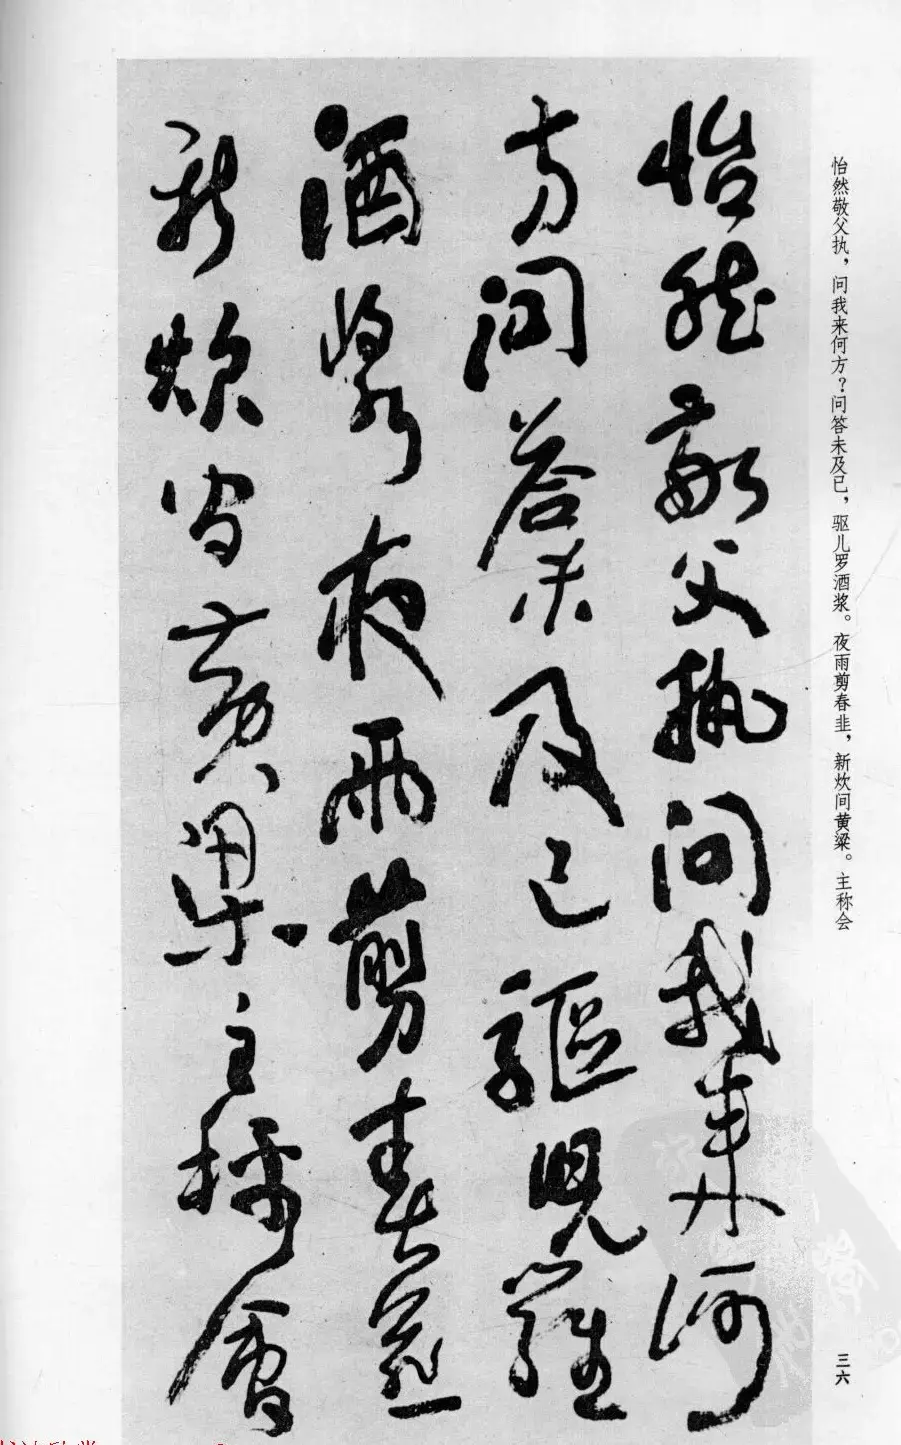 怡然敬父执，问我来何方？问答未及已，驱儿罗酒浆。夜雨剪春韭，新炊问黄粱。主称会
怡然敬父執問我來何
方問答未及已驅兒羅
酒漿夜雨剪春韭
新炊間黄粱主稱會
三六